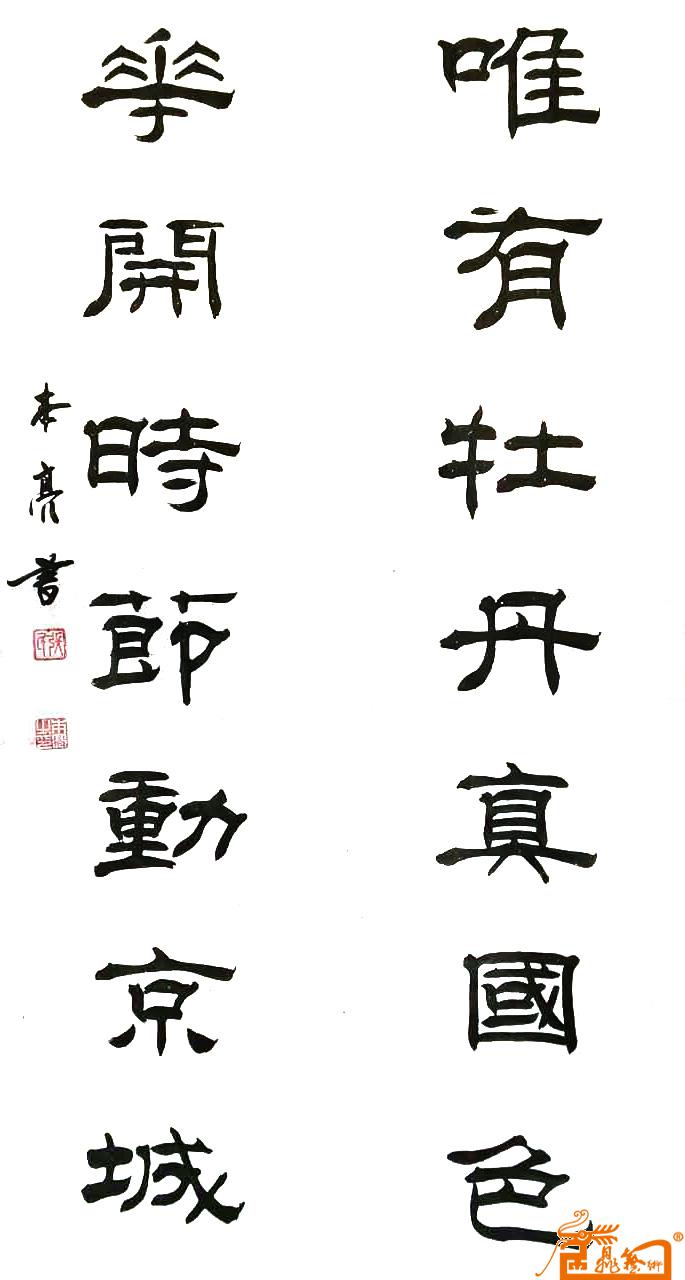 唯有牡丹真國色
華開時節動京城
本亮書